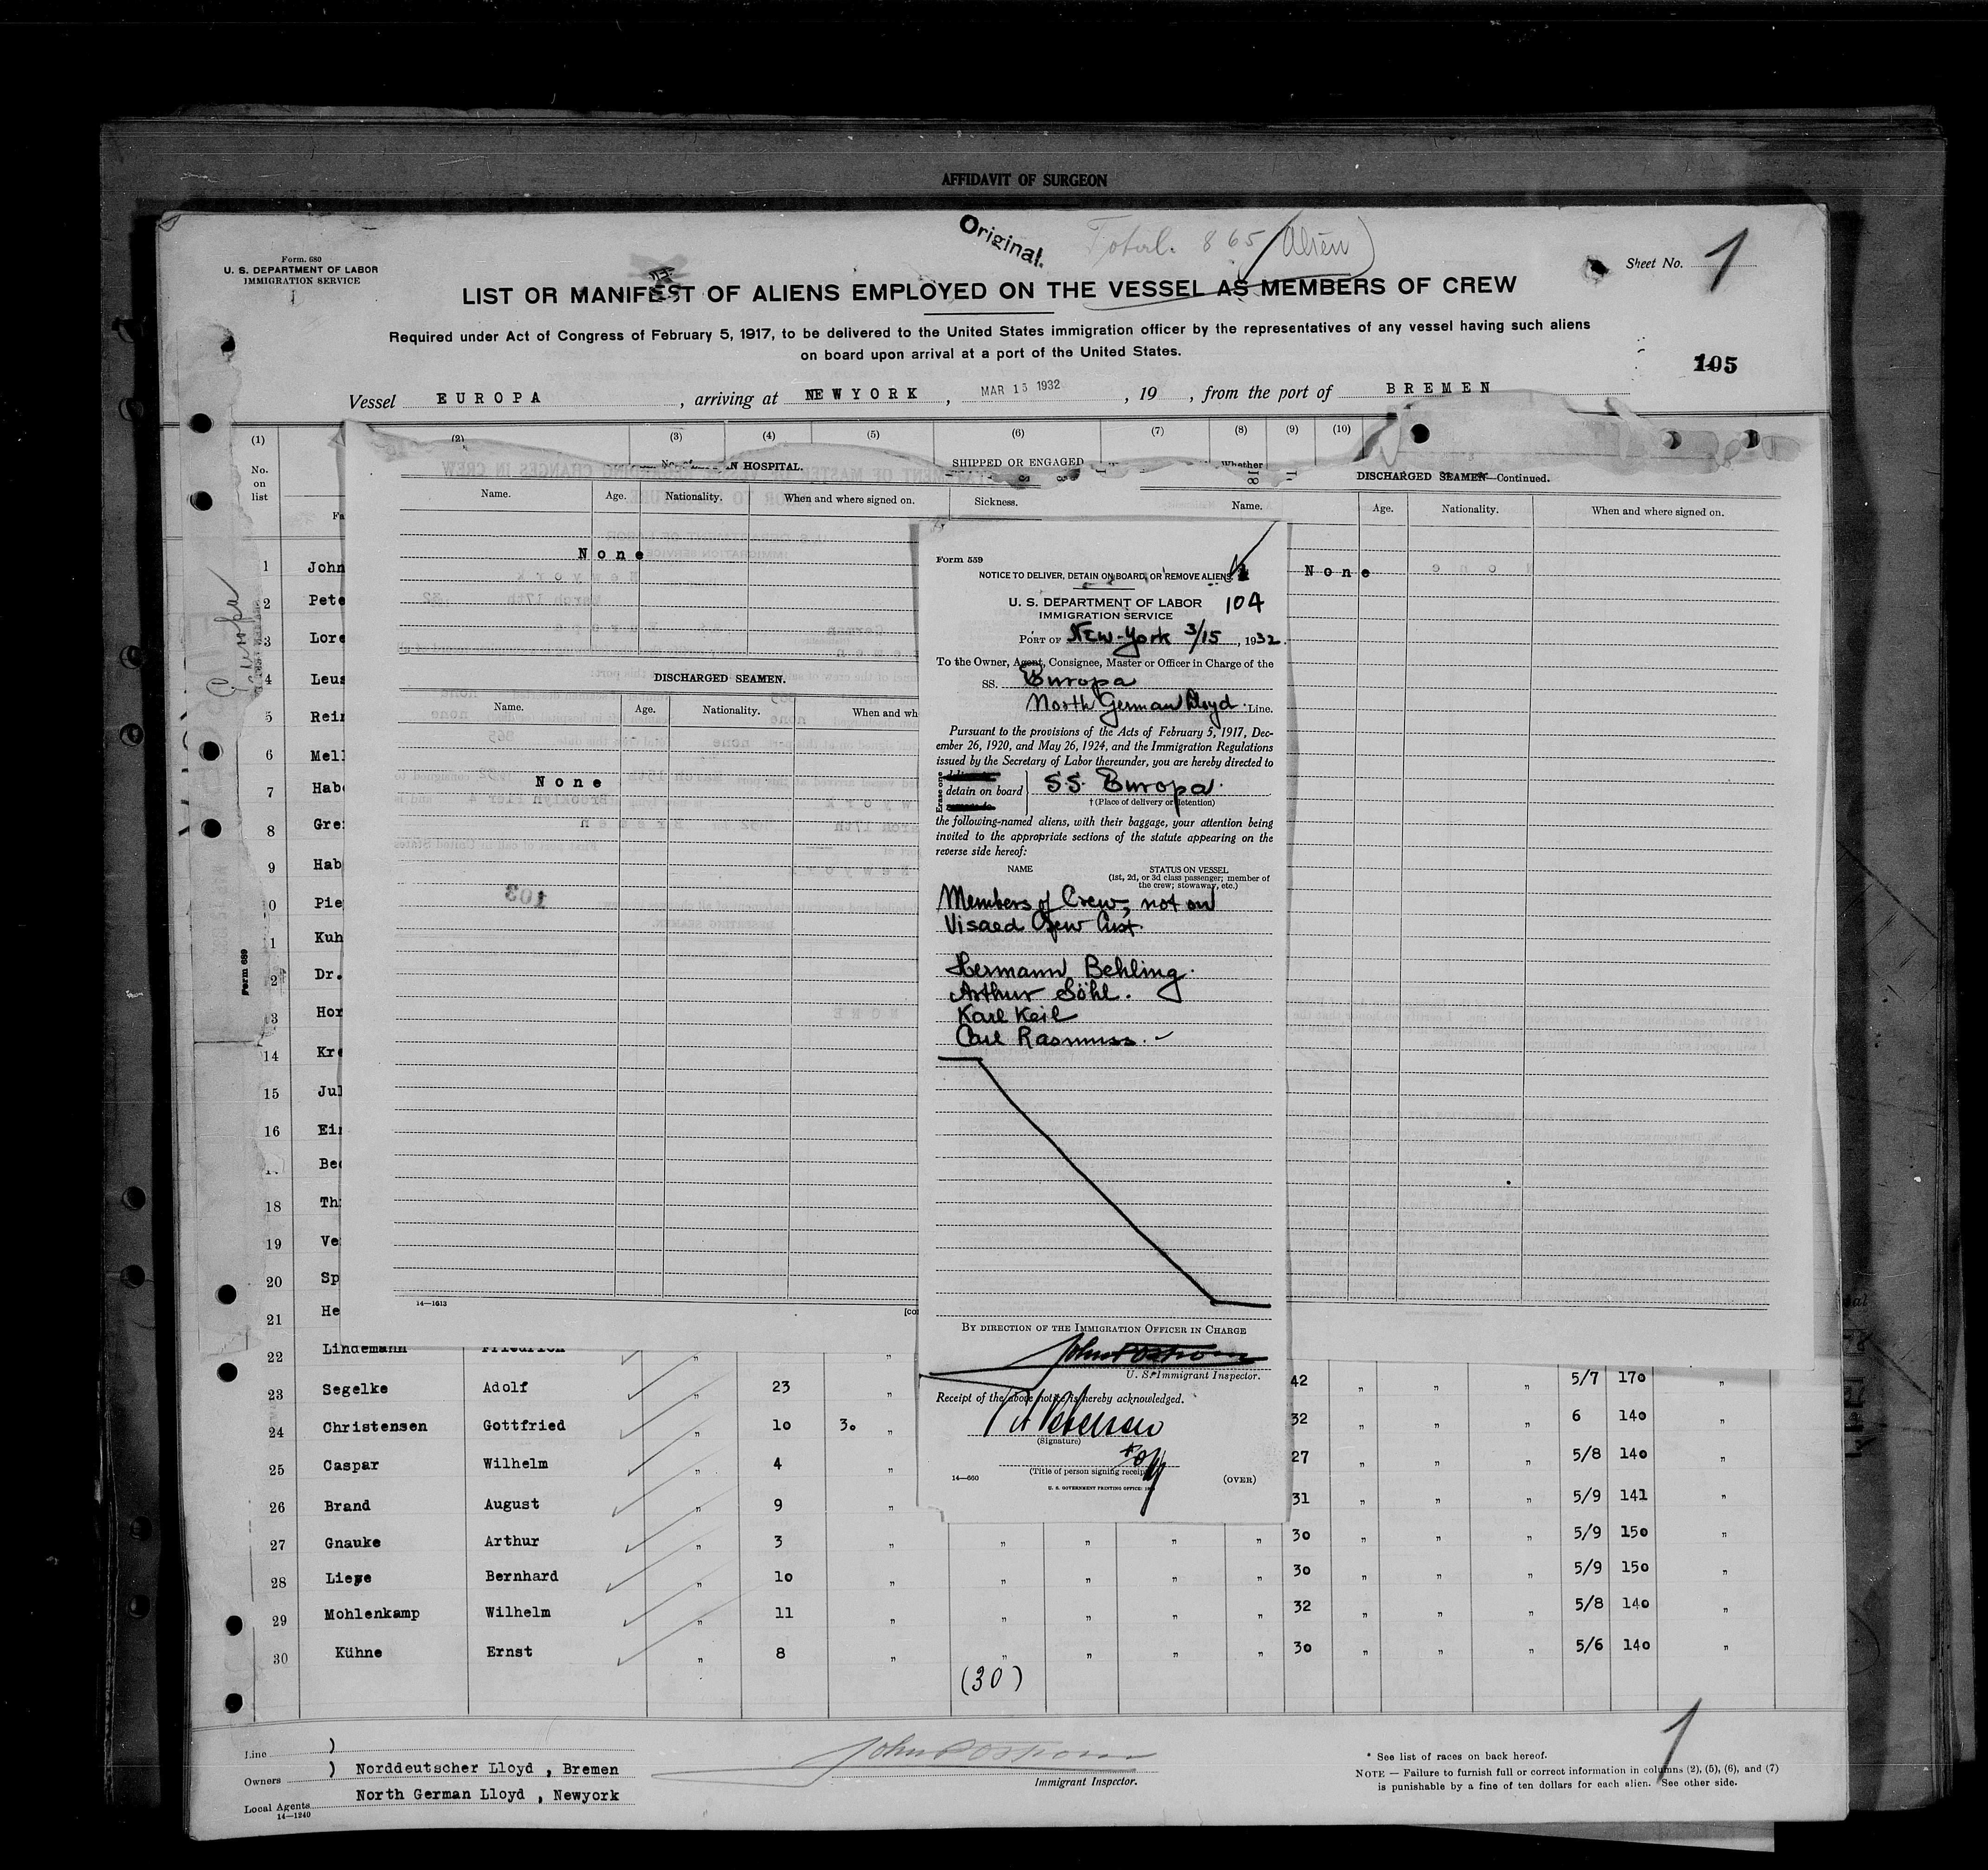 AFFIDAVIT OF SURGEON
Original.
Total. 865 (Alien)
Form. 680
U. S. DEPARTMENT OF LABOR
IMMIGRATION SERVICE
Sheet No. 1
LIST OR MANIFEST OF ALIENS EMPLOYED ON THE VESSEL AS MEMBERS OF CREW
Required under Act of Congress of February 5, 1917, to be delivered to the United States immigration officer by the representatives of any vessel having such aliens
on board upon arrival at a port of the United States.
105
Vessel EUROPA , arriving at NEWYORK , MAR 15 1932 , 19 , from the port of BREMEN
(1) (2) (3) (4) (5) (6) (7) (8) (9) (10)
No. on list
SHIPPED OR ENGAGED
Whether
N HOSPITAL.
Name. Age. Nationality. When and where signed on. Sickness.
None
DISCHARGED SEAMEN.
Name. Age. Nationality. When and wh
None
103
14—1613
DISCHARGED SEAMEN—Continued.
Name. Age. Nationality. When and where signed on.
None
Europa
Form 689
Form 559
NOTICE TO DELIVER, DETAIN ON BOARD, OR REMOVE ALIENS
U. S. DEPARTMENT OF LABOR
104
IMMIGRATION SERVICE
PORT OF New-York 3/15, 1932.
To the Owner, Agent, Consignee, Master or Officer in Charge of the
SS. Europa
North German Lloyd Line.
Pursuant to the provisions of the Acts of February 5, 1917, Dec-
ember 26, 1920, and May 26, 1924, and the Immigration Regulations
issued by the Secretary of Labor thereunder, you are hereby directed to
Erase one
detain on board
SS. Europa.
† (Place of delivery or detention)
the following-named aliens, with their baggage, your attention being
invited to the appropriate sections of the statute appearing on the
reverse side hereof:
NAME STATUS ON VESSEL
(1st, 2d, or 3d class passenger; member of
the crew; stowaway, etc.)
Members of Crew, not on
Visaed Crew List
Hermann Behling.
Arthur Söhl.
Karl Keil
Carl Rasmuss.
BY DIRECTION OF THE IMMIGRATION OFFICER IN CHARGE
U. S. Immigrant Inspector.
Receipt of the above notice is hereby acknowledged.
(Signature)
(Title of person signing receipt)
14—660 (OVER)
U. S. GOVERNMENT PRINTING OFFICE:
1 John
2 Pete
3 Lore
4 Leus
5 Rein
6 Mell
7 Habe
8 Gre
9 Hab
0 Pie
1 Kuh
2 Dr.
3 Hor
14 Kre
15 Jul
16 Ein
Bec
18 Th
19 Ve
20 Sp
21 He
22 Lindemann Friedrich " "
23 Segelke Adolf " 23 42 " " " 5/7 170 "
24 Christensen Gottfried " 10 30 " 32 " " " 6 140 "
25 Caspar Wilhelm " 4 " 27 " " " 5/8 140 "
26 Brand August " 9 " 31 " " " 5/9 141 "
27 Gnauke Arthur " 3 " " " " " 30 " " " 5/9 150 "
28 Liese Bernhard " 10 " " " " " 30 " " " 5/9 150 "
29 Mohlenkamp Wilhelm " 11 " " " " " 32 " " " 5/8 140 "
30 Kühne Ernst " 8 " " " " " 30 " " " 5/6 140 "
(30)
Line )
Owners ) Norddeutscher Lloyd , Bremen
Local Agents North German Lloyd , Newyork
14—1240
Immigrant Inspector.
* See list of races on back hereof.
NOTE — Failure to furnish full or correct information in columns (2), (5), (6), and (7)
is punishable by a fine of ten dollars for each alien. See other side.
1